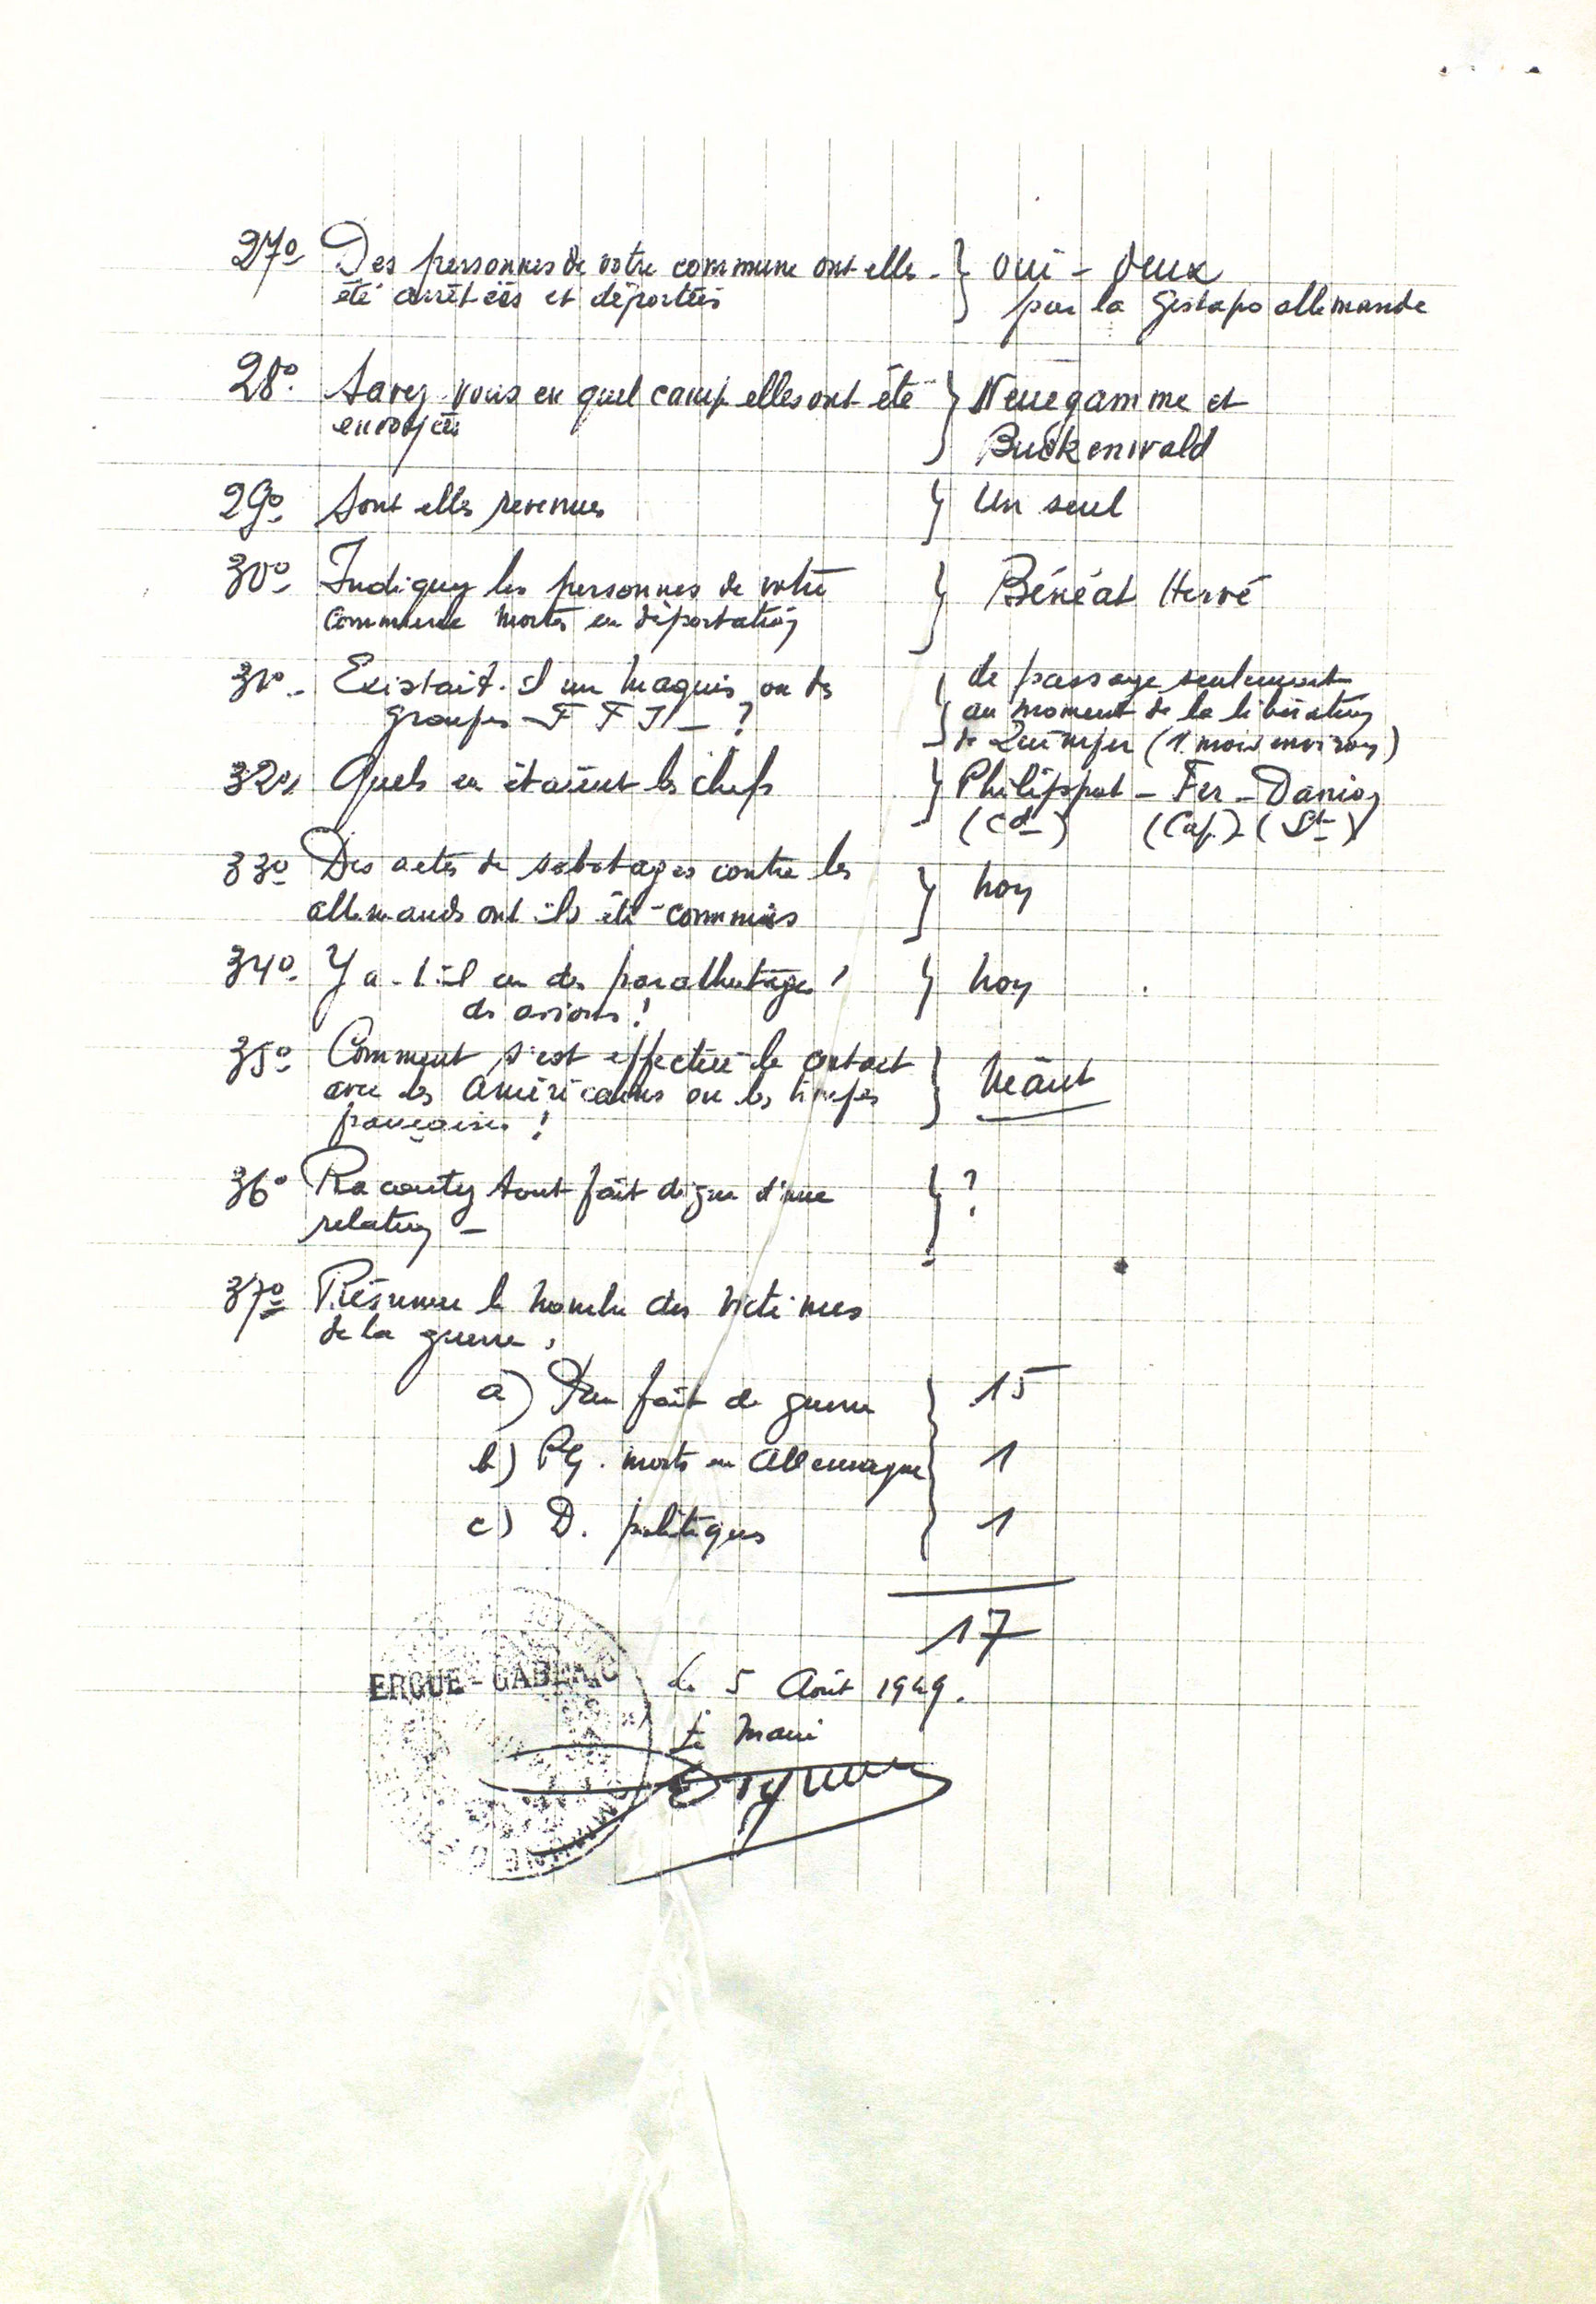 27º Des personnes de votre commune ont elle - } oui - deux
été arrêtées et déportées par la Gestapo allemande
28º. Savez-vous en quel camp elles ont été } Neuegamme et
envoyées Buckenwald
29º. Sont elles revenues } Un seul
30º- Indiquez les personnes de votre } Bénéat Hervé
commune mortes en déportation
31º- Existait-il un maquis ou des } de passage seulement
groupes - F F I - ? au moment de la libération
de Quimper (1 mois environ)
32º Quels en étaient les chefs } Philippot - Fer - Danion
(Cdt) (Cap.) - (Lt)
33º Des actes de sabotages contre les } non
allemands ont ils été commis
34º- Y a-t-il eu des parachutages } non
des avions !
35º Comment s'est effectué le contact } Néant
avec les américains ou les troupes
françaises !
36º Racontez tout fait digne d'une } ?
relation -
37º Résumer le nombre des victimes
de la guerre,
a) Par fait de guerre } 15
b) PG. morts en Allemagne } 1
c) D. politiques } 1
17
ERGUE-GABERIC le 5 Août 1949.
Le Maire